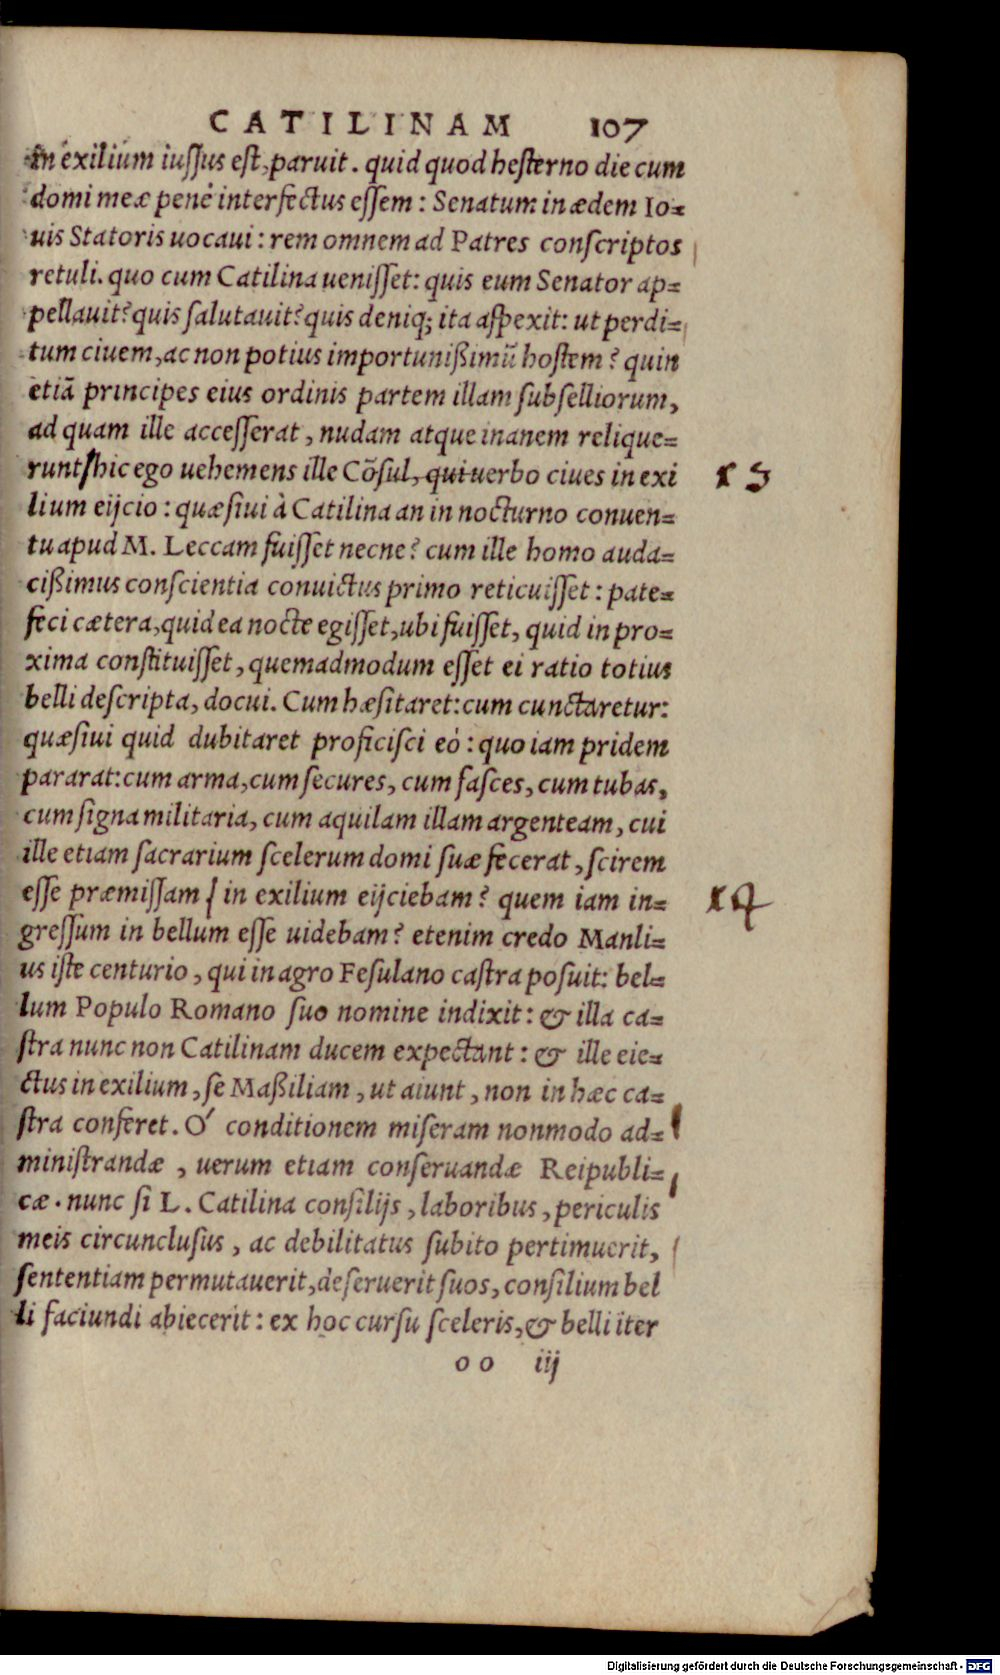 CATILINAM 107
in exilium iussus est, paruit. quid quod hesterno die cum
domi meæ penè interfectus essem: Senatum in ædem Io=
uis Statoris uocaui: rem omnem ad Patres conscriptos
retuli. quo cum Catilina uenisset: quis eum Senator ap=
pellauit? quis salutauit? quis deniq; ita aspexit: ut perdi=
tum ciuem, ac non potius importunißimũ hostem? quin
etiã principes eius ordinis partem illam subselliorum,
ad quam ille accesserat, nudam atque inanem relique=
runt hic ego uehemens ille Cõsul, qui uerbo ciues in exi
13
lium eijcio: quæsiui à Catilina an in nocturno conuen=
tu apud M. Leccam fuisset necne? cum ille homo auda=
cißimus conscientia conuictus primo reticuisset: pate=
feci cætera, quid ea nocte egisset, ubi fuisset, quid in pro=
xima constituisset, quemadmodum esset ei ratio totius
belli descripta, docui. Cum hæsitaret: cum cunctaretur:
quæsiui quid dubitaret proficisci eó: quo iam pridem
pararat: cum arma, cum secures, cum fasces, cum tubas,
cum signa militaria, cum aquilam illam argenteam, cui
ille etiam sacrarium scelerum domi suæ fecerat, scirem
esse præmissam in exilium eijciebam? quem iam in=
14
gressum in bellum esse uidebam? etenim credo Manli=
us iste centurio, qui in agro Fesulano castra posuit: bel=
lum Populo Romano suo nomine indixit: & illa ca=
stra nunc non Catilinam ducem expectant: & ille eie=
ctus in exilium, se Maßiliam, ut aiunt, non in hæc ca=
stra conferet. Ó conditionem miseram nonmodo ad=
ministrandæ, uerum etiam conseruandæ Reipubli=
cæ. nunc si L. Catilina consilijs, laboribus, periculis
meis circunclusus, ac debilitatus subito pertimuerit,
sententiam permutauerit, deseruerit suos, consilium bel
li faciundi abiecerit: ex hoc cursu sceleris, & belli iter
oo iij
Digitalisierung gefördert durch die Deutsche Forschungsgemeinschaft - DFG